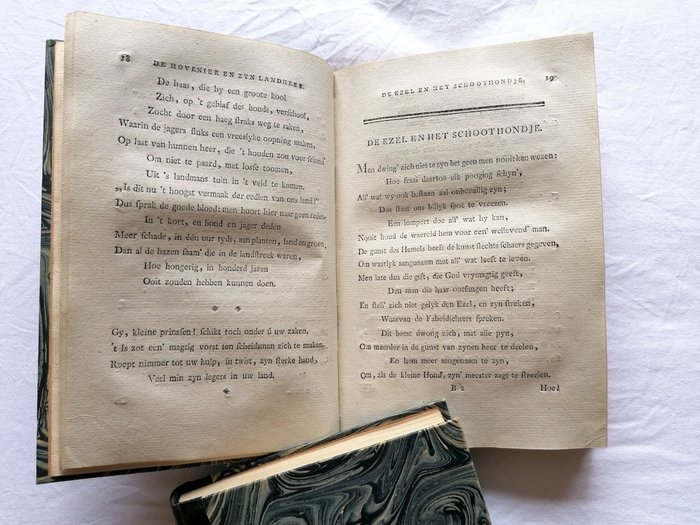 18 DE HOVENIER EN ZYN LANDHEER.
De haas, die by een groote kool
Zich, op 't geblaf des honds, verschool,
Zocht door een haeg straks weg te raken,
Waarin de jagers fluks een vreeslyke oopning maken,
Op last van hunnen heer, die 't houden zou voor schand'
Om niet te paard, met losse toomen,
Uit 's landmans tuin in 't veld te komen.
„Is dit nu 't hoogst vermaak der eedlen van ons land!"
Dus sprak de goede bloed: men hoort hier naar geen reden,
In 't kort, en hond en jager deden
Meer schade, in één uur tyds, aan planten, land en groen,
Dan al de hazen saam' die in de landstreek waren,
Hoe hongerig, in honderd jaren
Ooit zouden hebben kunnen doen.
Gy, kleine prinsen! schikt toch onder ú uw zaken.
't Is zot een' magtig vorst ten scheidsman zich te maken.
Roept nimmer tot uw hulp, in twist, zyn sterke hand,
Veel min zyn legers in uw land.
DE EZEL EN HET SCHOOTHONDJE. 19
DE EZEL EN HET SCHOOTHONDJE.
Men dwing' zich niet te zyn het geen men nooit kan wezen:
Hoe fraai daartoe elk pooging schyn',
All' wat wy ook bestaan zal onbevallig zyn;
Dus staat ons billyk spot te vreezen.
Een lompert doe all' wat hy kan,
Nooit houd de waereld hem voor een' wellevend' man.
De gunst des Hemels heeft de kunst slechts schaers gegeven,
Om waarlyk aangenaam met all' wat leeft te leven.
Men late dan die gift, die God vrymagtig geeft,
Dan man die haar ontfangen heeft;
En stell' zich niet gelyk den Ezel, en zyn streken,
Waarvan de Fabeldichters spreken.
Dit beest dwong zich, met alle pyn,
Om meerder in de gunst van zynen heer te deelen,
En hem meer aangenaam te zyn,
Om, als de kleine Hond, zyn' meester zagt te streelen.
B 2 Hoe!